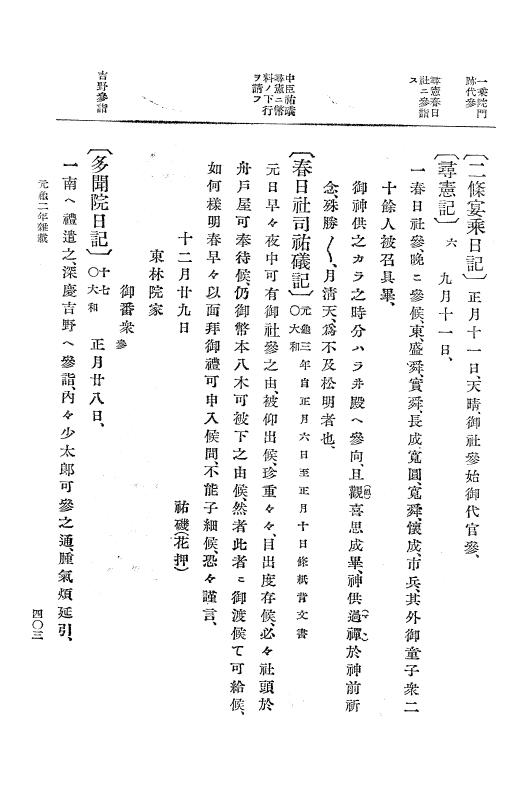 一乘院門
跡代參
尋憲春日
社ニ參詣
ス
中臣祐礒
尋憲ニ幣
料ノ下行
ヲ請フ
吉野參詣
〔二條宴乘日記〕 正月十一日、天晴、御社參始御代官參、
〔尋憲記〕 六 九月十一日、
一春日社參晚ニ參候、東、盛舜、實舜、長成、寬圓、寬舜、懷成、市兵其外御童子衆二
十餘人被召具畢、
御神供之カラ之時分ハラ并殿ヘ參向、且觀喜思成畢、神供過禪於神前祈
念殊勝〳〵、月清天、爲不及松明者也、
〔春日社司祐礒記〕 〇大和 元龜三年自正月六日至正月十日條紙背文書
元日早々夜中可有御社參之由、被仰出候、珍重々々、目出度存候、必々社頭於
舟戸屋可奉待候、仍御幣本八木可被下之由候、然者此者ニ御渡候て可給候、
如何樣明春早々以面拜御禮可申入候間、不能子細候、恐々謹言、
十二月廿九日 祐礒(花押)
東林院家
御番衆參
〔多聞院日記〕 十七 〇大和 正月廿八日、
一南ヘ禮遣之、深慶吉野ヘ參詣、內々少太郎可參之通、腫氣煩延引、
元龜二年雜載
四〇三